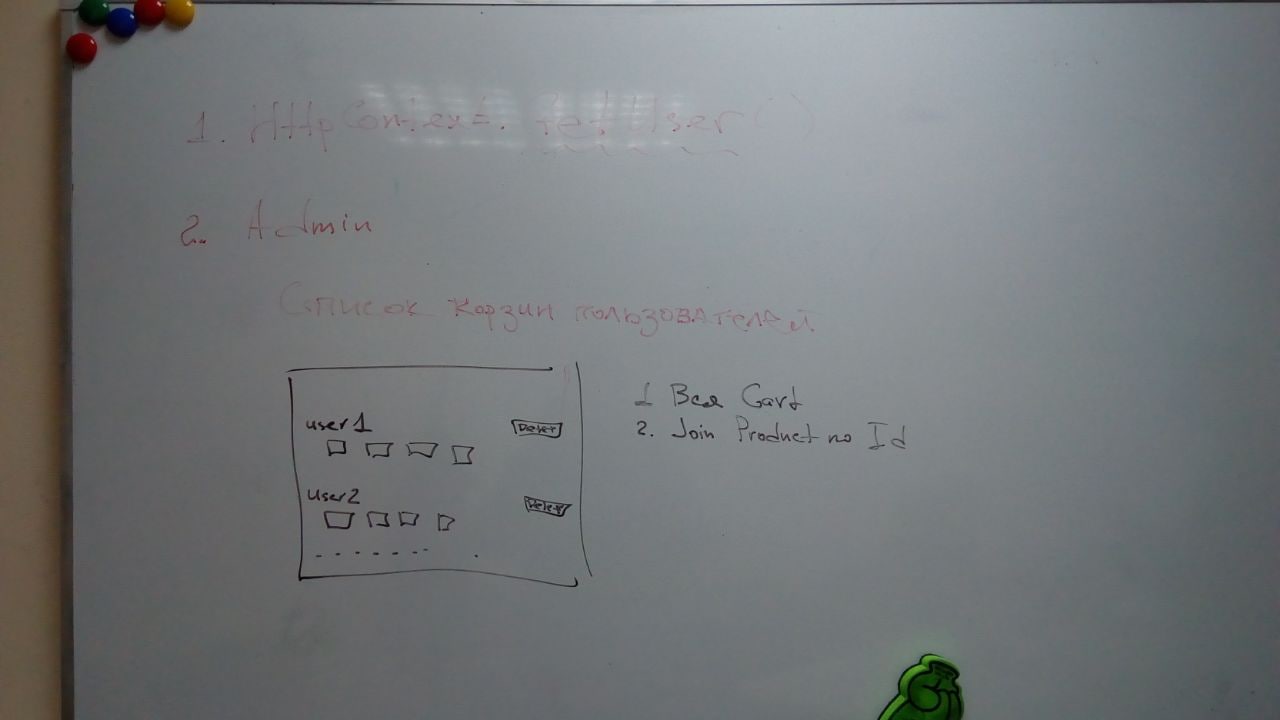 1. HttpContext.GetUser()
2. Admin
Список корзин пользователей
user1 Delet
user2 Delet
1 Вся Cart
2. Join Product по Id